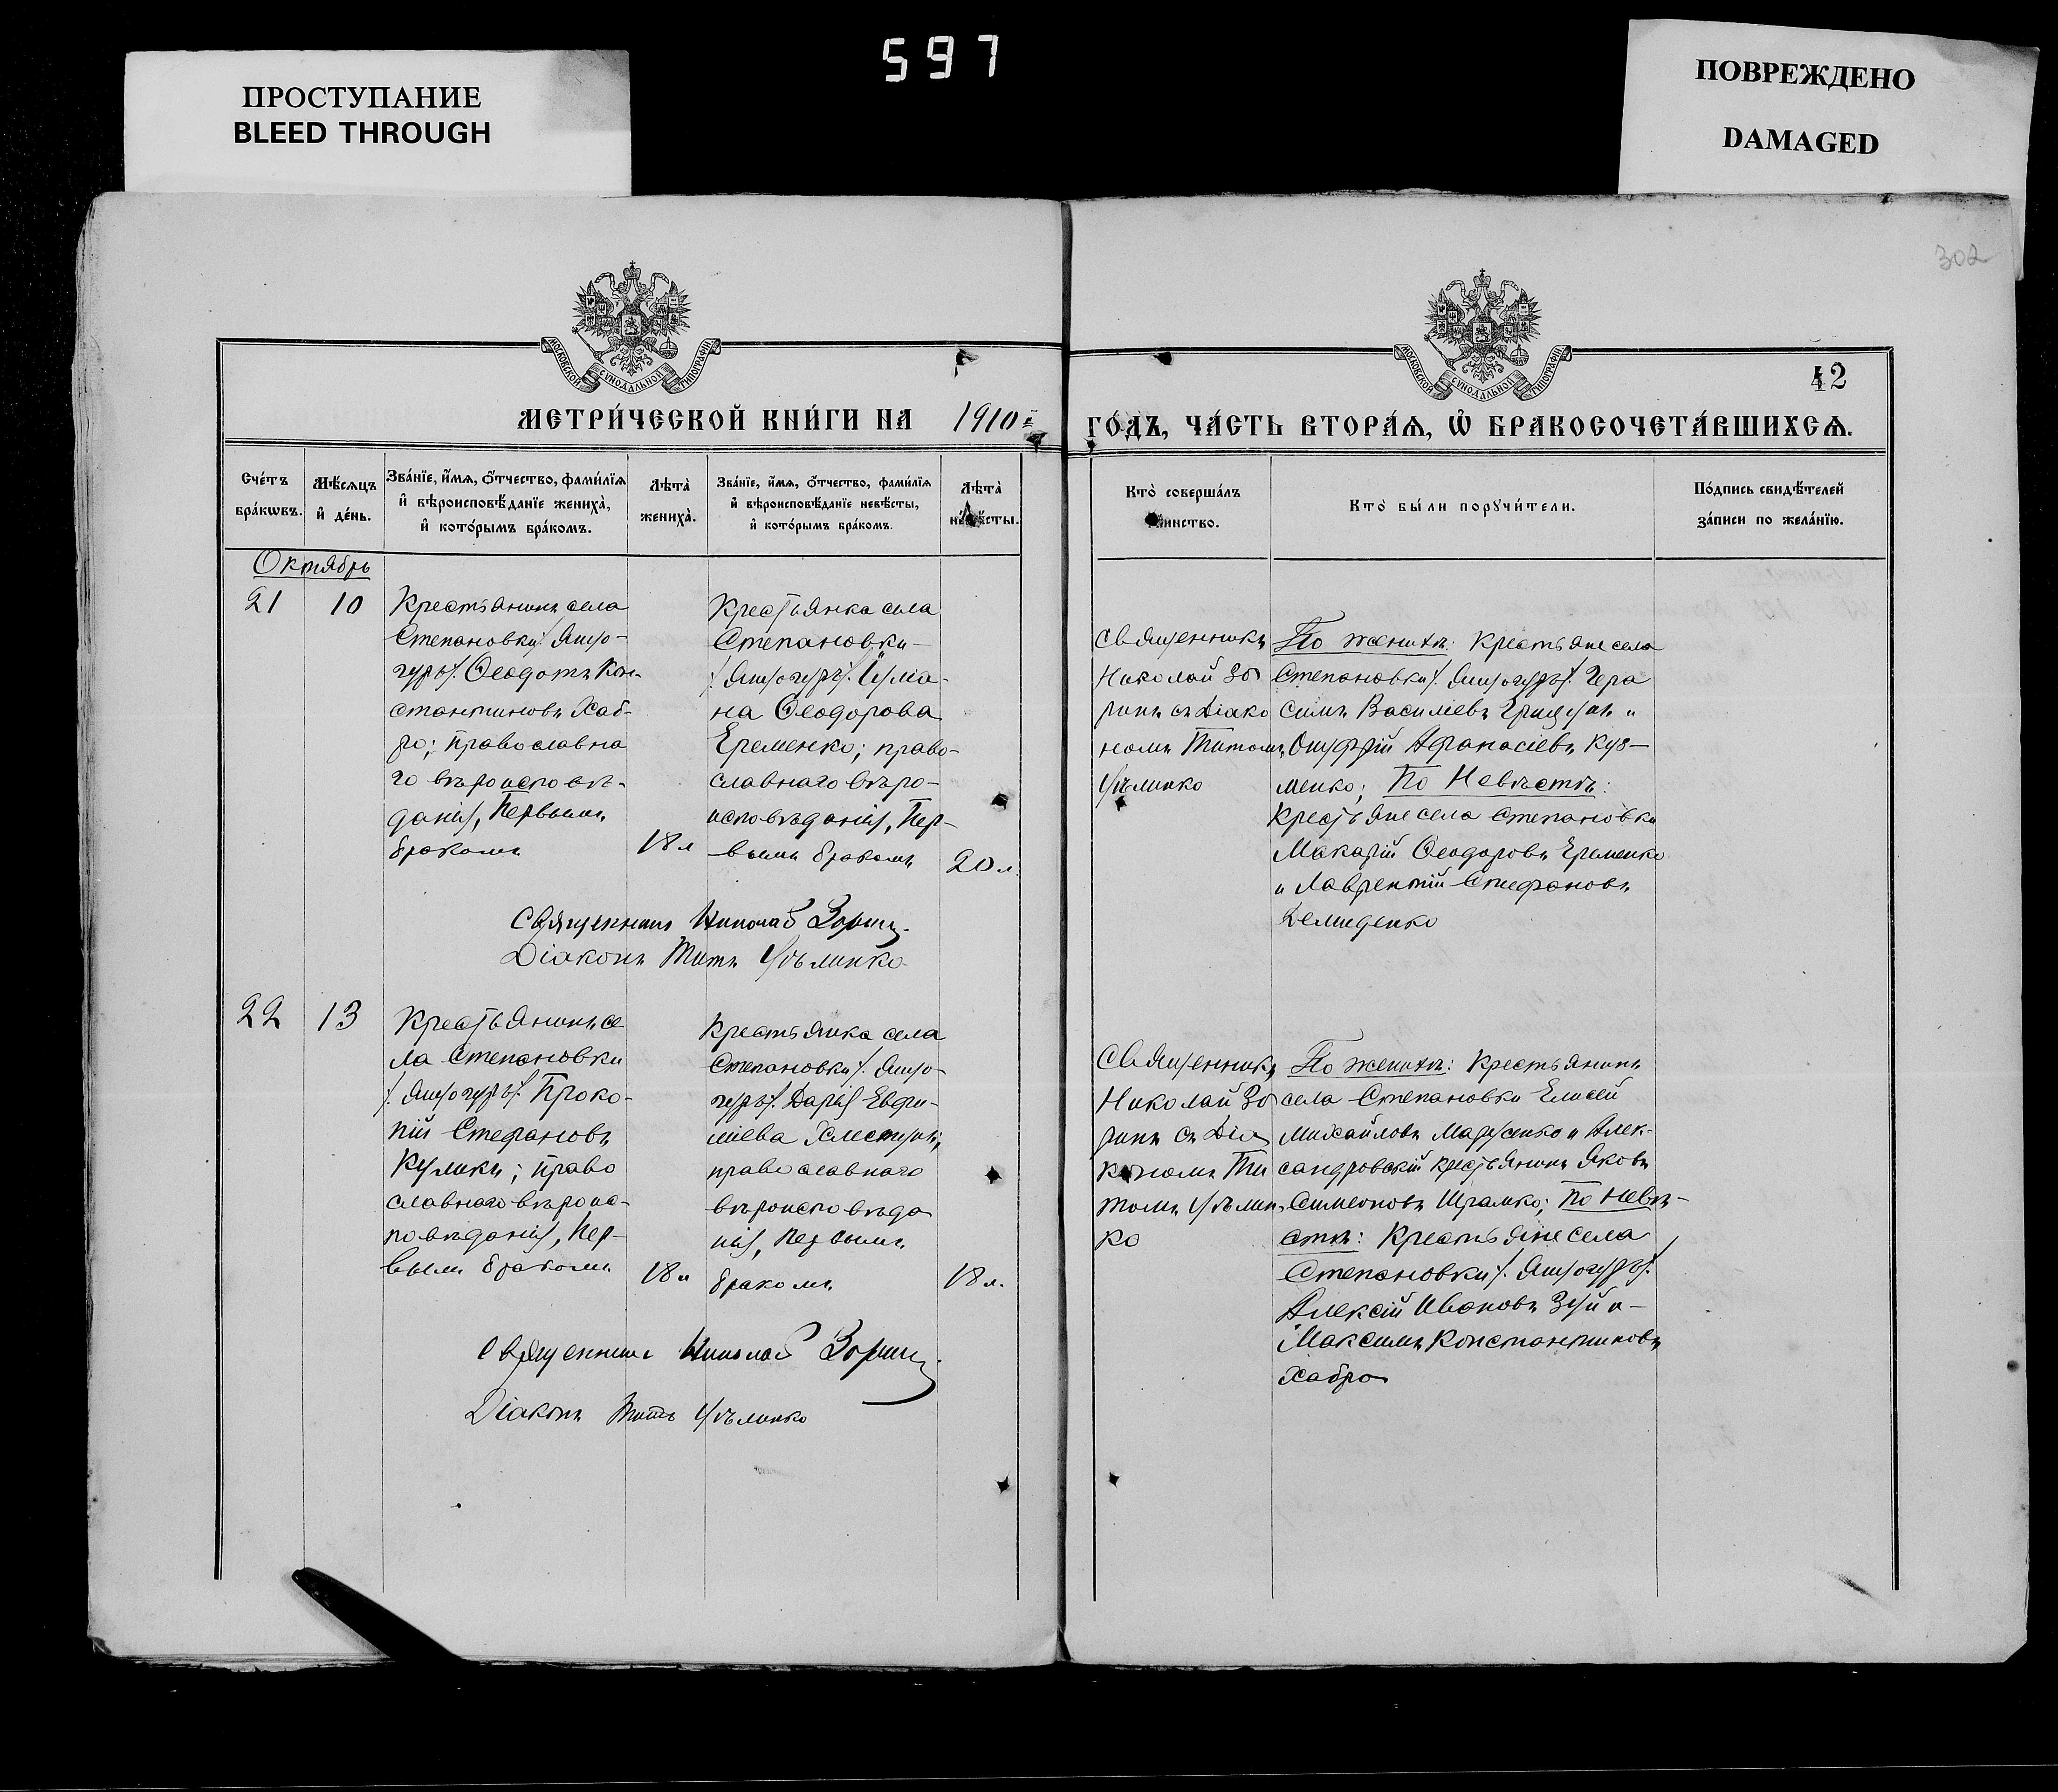 597
ПРОСТУПАНИЕ
BLEED THROUGH
ПОВРЕЖДЕНО
DAMAGED
302
МОСКОВСКОЙ СУНОДАЛЬНОЙ ТИПОГРАФІИ
МОСКОВСКОЙ СУНОДАЛЬНОЙ ТИПОГРАФІИ
42
МЕТРИ́ЧЕСКОЙ КНИ́ГИ НА 1910
ГО́ДЪ, ЧА́СТЬ ВТОРА́Ѧ, Ѡ БРАКОСОЧЕТА́ВШИХСѦ.
Сче́тъ
бра́кѡвъ.
Мѣ́сѧцъ
и де́нь.
Зва́нїе, и́мѧ, о́тчество, фами́лїѧ
и вѣроисповѣ́данїе жениха̀,
и кото́рымъ бра́комъ.
Лѣта̀
жениха̀.
Зва́нїе, и́мѧ, о́тчество, фами́лїѧ
и вѣроисповѣ́данїе невѣ́сты,
и кото́рымъ бра́комъ.
Лѣта̀
невѣ́сты.
Кто̀ соверша́лъ
таинство.
Кто̀ бы́ли порꙋчи́тели.
По́дпись свидѣ́телей
за́писи по жела́нїю.
Октябрь
21
10
Крестьянинъ села
Степановки
Ѳеодотъ Кон-
стантиновъ Хаб-
ро; православна
го вѣроисповѣ-
данія, Первымъ
бракомъ
18 л
Крестьянка села
Степановки
на Ѳеодорова
Еременко; право-
славнаго вѣро-
исповѣданія, Пер-
вымъ бракомъ
20 л.
Священникъ
Николай Зо
ринъ съ Діако
номъ Титомъ
По женихѣ: Крестьяне села
Степановки Гера
симъ Василіевъ
Онуфрій Аѳанасіевъ Куз-
менко; По Невѣстѣ:
Крестьяне села Степановки
Макарій Ѳеодоровъ Еременко
и Лаврентій Стефановъ
Демиденко
Священникъ Николай Зоринъ
Діаконъ Титъ
22
13
Крестьянинъ се
ла Степановки
Проко-
пій Стефановъ
Куликъ; право
славнаго вѣроис-
повѣданія, Пер-
вымъ бракомъ
18 л
Крестьянка села
Степановки
Дарія Евфи-
міева
православнаго
вѣроисповѣда
нія, Первымъ
бракомъ
18 л.
Священникъ
Николай Зо
ринъ съ Діа
кономъ Ти
томъ
ко
По женихѣ: Крестьянинъ
села Степановки Елисей
Михайловъ Марченко и Алек-
сандровскій крестьянинъ Яковъ
Симеоновъ Шрамко; По Невѣ-
стѣ: Крестьяне села
Степановки
Алексій Ивановъ Зуй и
Максимъ Константиновъ
Хабро
Священникъ Николай Зоринъ
Діаконъ Титъ